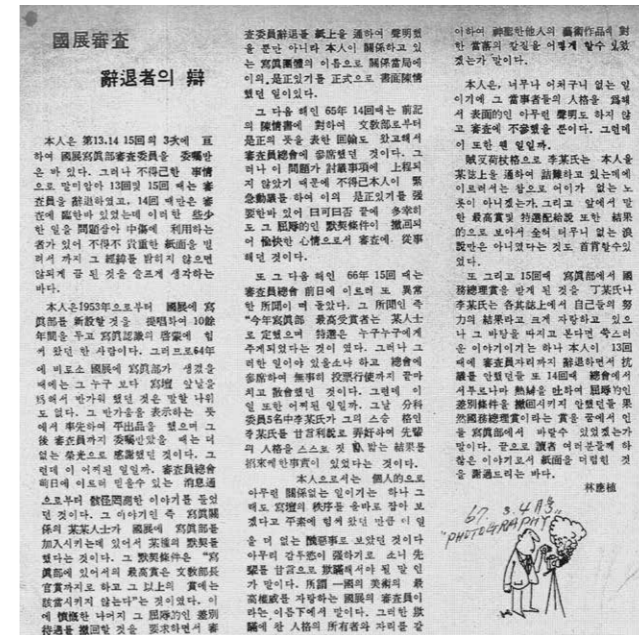 國展審査
辭退者의 辯
本人은 第13.14 15回의 3次에 亘
하여 國展寫眞部審査委員을 委囑받
은 바 있다. 그러나 不得己한 事情
으로 말미암아 13回및 15回 때는 審
査員을 辭退하였고, 14回 때만은 審
査에 臨한바 있었는데 이러한 些少
한 일을 問題삼아 中傷에 利用하는
者가 있어 不得不 貴重한 紙面을 빌
려서 까지 그 經緯를 밝히지 않으면
않되게 끔 된 것을 슬프게 생각하는
바다.
本人은1953年으로부터 國展에 寫
眞部를 新設할 것을 提唱하여 10餘
年間을 두고 寫眞部謙의 啓蒙에 힘
써 왔던 한 사람이다. 그러므로64年
에 비로소 國展에 寫眞部가 생겼을
때에는 그 누구 보다 寫壇 앞날을
爲해서 반가워 했던 것은 말할 나위
도 없다. 그 반가움을 表示하는 뜻
에서 率先하여 平出品을 했으며 그
後 審査員까지 委囑받았을 때는 더
없는 榮光으로 感謝했던 것이다. 그
런데 이 어찌된 일일까. 審査員總會
前日에 이르러 믿을수 있는 消息通
으로부터 數怪罔測한 이야기를 들었
던 것이다. 그 이야기인 즉 寫眞關
係의 某某人士가 國展에 寫眞部를
加入시키는데 있어서 某種의 默契를
했다는 것이다. 그 默契條件은 “寫
眞部에 있어서의 最高賞은 文敎部長
官賞까지로 하고 그 以上의 賞에는
該當시키지 않는다”는 것이였다. 이
에 憤慨한 나머지 그 屈辱的인 差別
待遇를 撤回할 것을 要求하면서 審
査委員辭退를 紙上을 通하여 聲明했
을 뿐만 아니라 本人이 關係하고 있
는 寫眞團體의 이름으로 關係當局에
이의.是正있기를 正式으로 書面陳情
했던 일이있다.
그 다음 해인 65年 14回때는 前記
의 陳情書에 對하여 文敎部로부터
是正의 뜻을 表한 回輪도 왔고해서
審査員總會에 參席했던 것이다. 그
러나 이 問題가 討議事項에 上程되
지 않았기 때문에 不得己本人이 緊
急動議를 하여 이의 是正있기를 强
要한바 있어 曰可曰否 끝에 多幸히
도 그 屈辱的인 默契條件이 撤回되
어 愉快한 心情으로서 審査에 從事
해던 것이다.
또 그 다음 해인 66年 15回 때는
審査員總會 前日에 이르러 또 異常
한 所聞이 떠 돌았다. 그 所聞인 즉
“今年寫眞部 最高受賞者는 某人士
로 定했으며 特選은 누구누구에게
주게되었다는 것이 였다. 그러나 그
러한 일이야 있을소냐 하고 總會에
參席하여 無事히 投票行使까지 끝마
치고 散會했던 것이다. 그런데 이
일 또한 어찌된 일일까. 그날 分科
委員5名中李某氏가 그의 스승 格인
李某氏를 甘言利說로 弄奸하여 先輩
의 人格을 스스로 짓 밟는 結果를
招來케한事實이 있었다는 것이다.
本人으로서는 個人的으로
아무런 關係없는 일이기는 하나 그
때도 寫壇의 秩序를 올바로 잡아 보
겠다고 平素에 힘써 왔던 만큼 이 일
을 더 없는 醜惡事로 보았던 것이다
아무리 감투慾이 强하기로 소니 先
輩를 甘言으로 欺瞞해서야 될 말 인
가 말이다. 所謂 一國의 美術의 最
高權威를 자랑하는 國展의 審査員이
라는 이름下에서 말이다. 그러한 欺
瞞에 찬 人格의 所有者와 자리를 같
이하여 神聖한他人의 藝術作品에 對
한 當落의 칼질을 어떻게 할수 있었
겠는가 말이다.
本人은, 너무나 어처구니 없는 일
이기에 그 當事者들의 人格을 爲해
서 表面的인 아무런 聲明도 하지 않
고 審査에 不參했을 뿐이다. 그런데
이 또한 웬 일일까.
賊反荷杖格으로 李某氏는 本人을
某誌上을 通하여 詰難하고 있는데에
이르러서는 참으로 어이가 없는 노
릇이 아니겠는가. 그리고 앞에서 말
한 最高賞및 特選配給說 또한 結果
的으로 보아서 全혀 터무니 없는 浪
說만은 아니였다는 것도 首肯할수있
었다.
또 그리고 15回때 寫眞部에서 國
務總理賞을 받게 된 것을 丁某氏나
李某氏는 各其誌上에서 自己들의 努
力의 結果라고 크게 자랑하고 있으
나 그 바탕을 따지고 본다면 쑥스러
운 이야기이기는 하나 本人이 13回
때에 審査員자리까지 辭退하면서 抗
議를 안했던들 또 14回때 總會에서
서투르나마 熱辯을 吐하여 屈辱的인
差別條件을 撤回시키지 안했던들 果
然國務總理賞이라는 賞을 꿈에서 인
들 寫眞部에서 바랄수 있었겠는가
말이다. 끝으로 讀者 여러분들께 하
찮은 이야기로서 紙面을 더럽힌 것
을 謝過드리는 바다.
林應植
67. 3.4月号
"PHOTOGRAPHY"